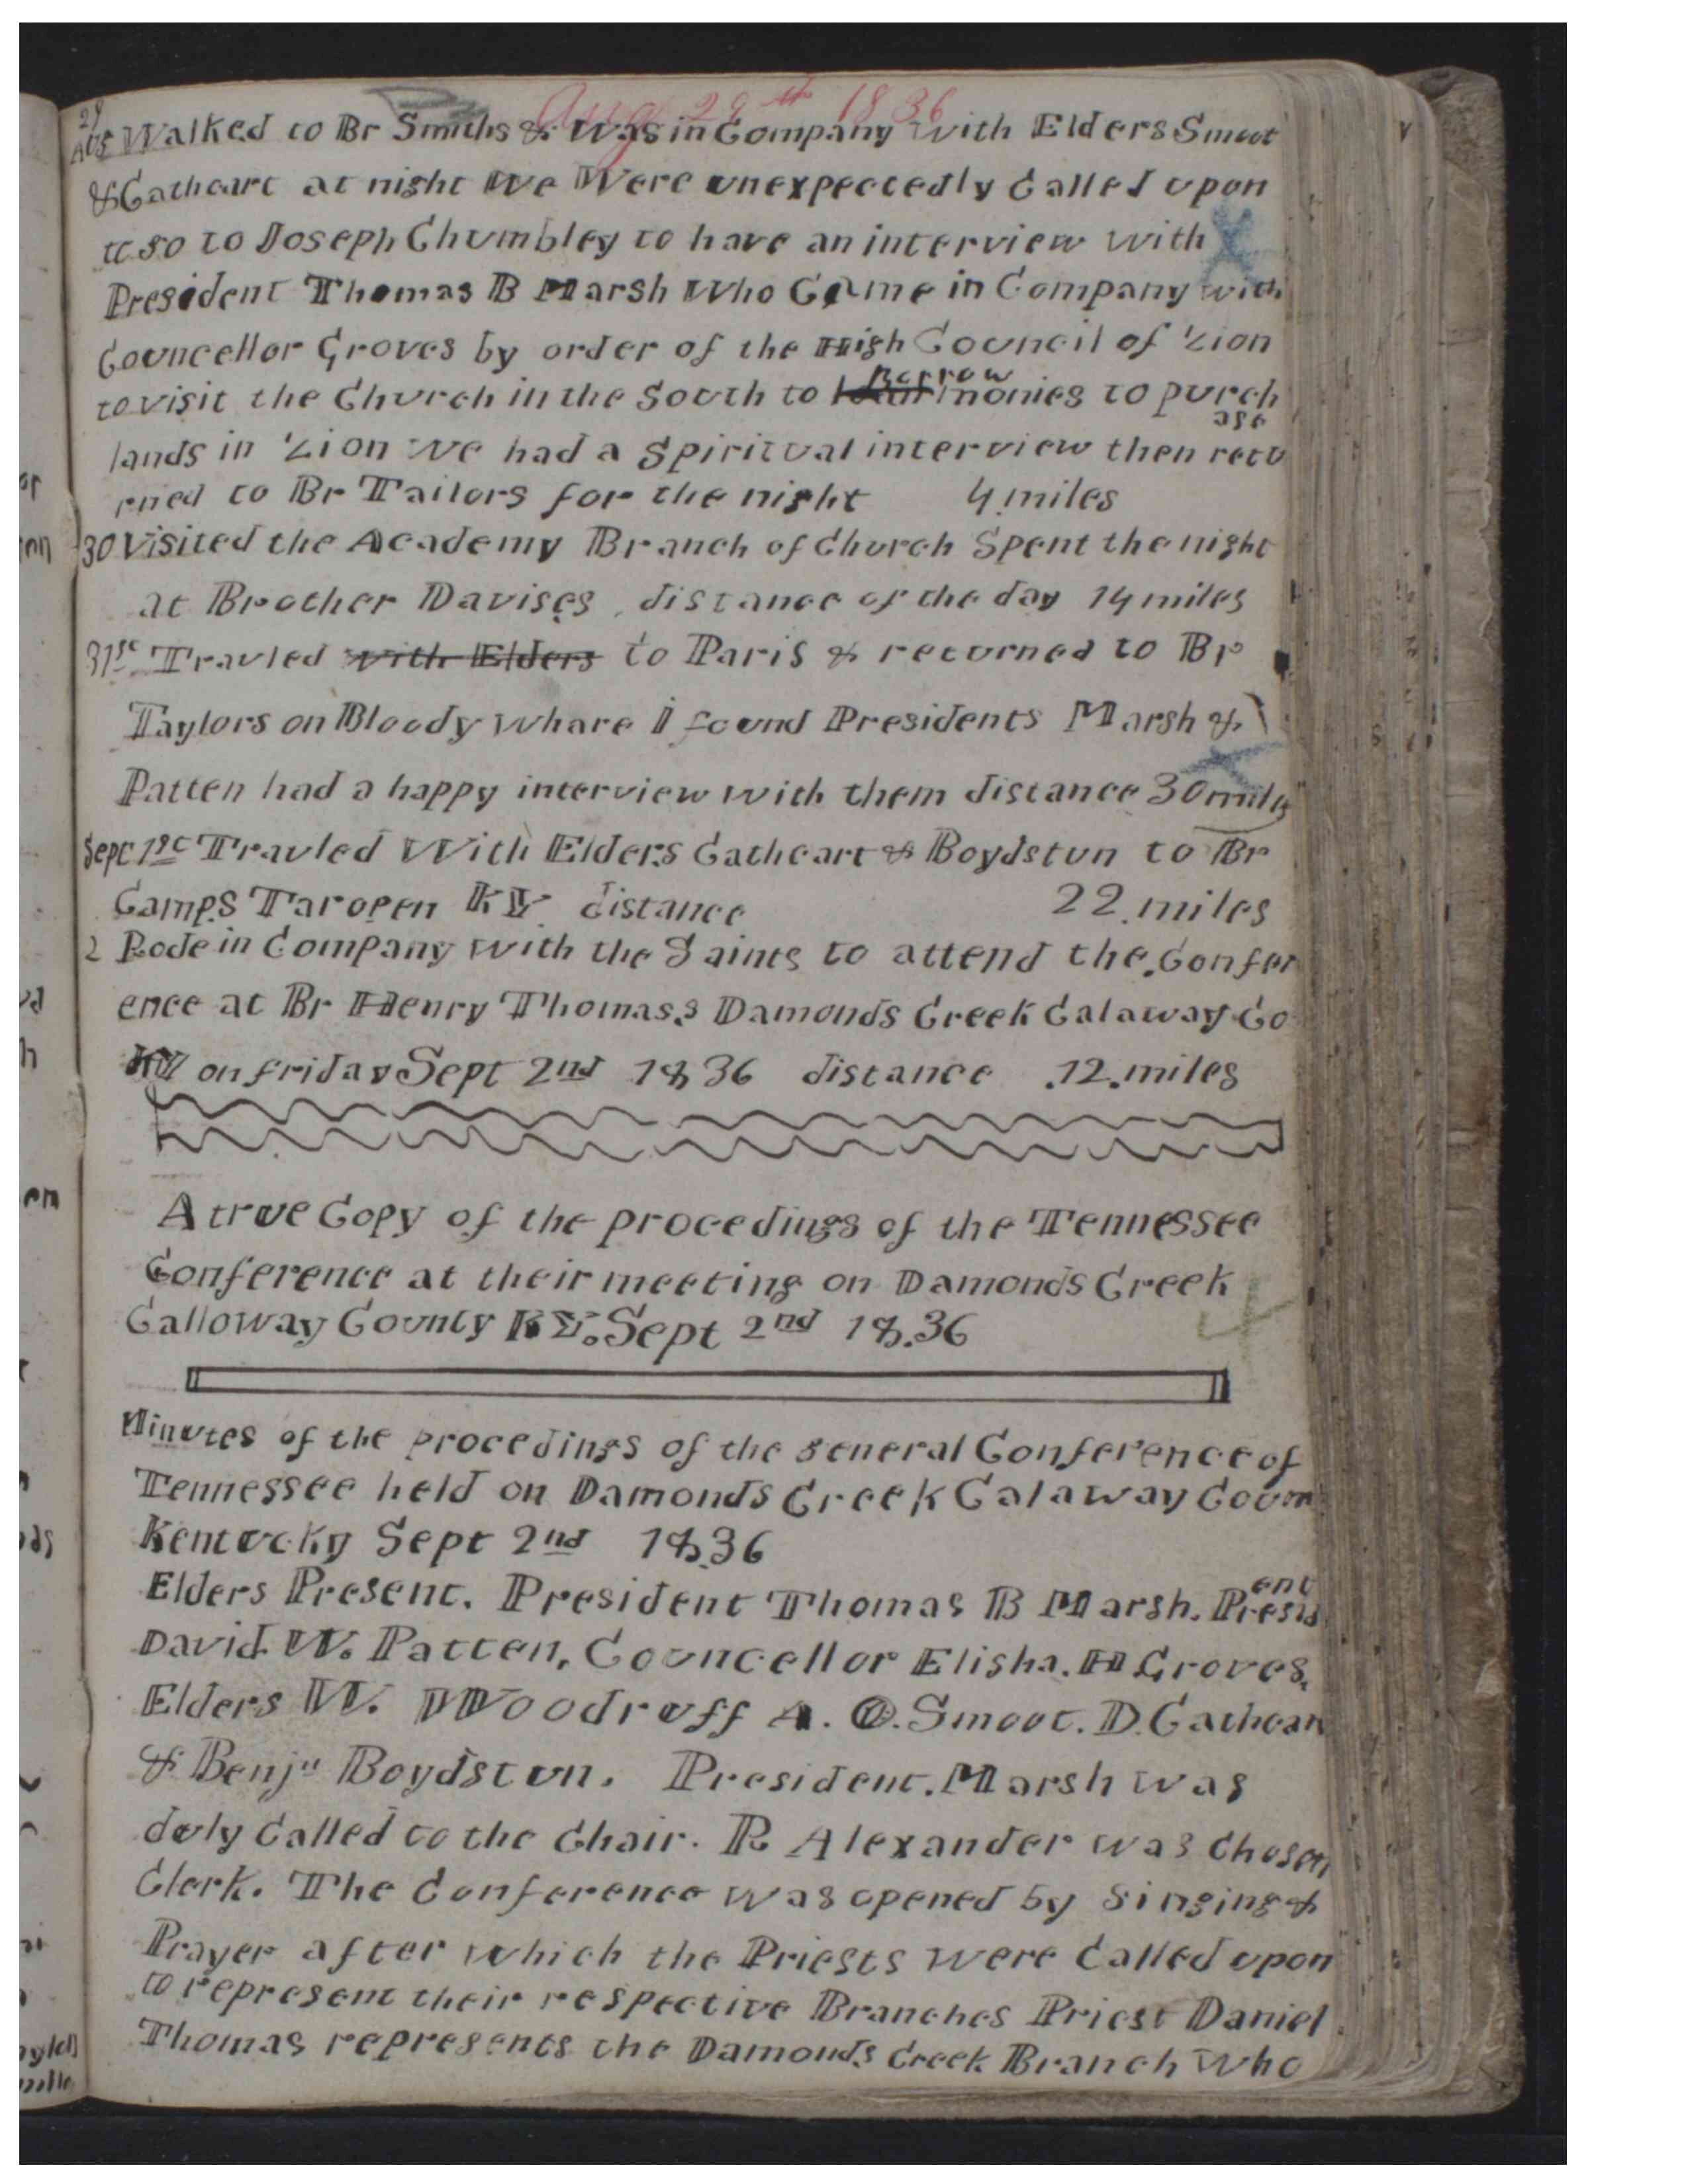 Aug 29th 1836
29 Aug Walked to Br Smiths & was in Company with Elders Smoot
& Cathcart at night We Were unexpectedly Called upon
to go to Joseph Chumbley to have an interview with
President Thomas B Marsh Who Came in Company with
Councellor Groves by order of the High Council of Zion
to visit the Church in the South to Borrow monies to purch
ase
lands in Zion We had a Spiritual interview then retu
rned to Br Tailors for the night 4 miles
30 Visited the Academy Branch of Church Spent the night
at Brother Davises distance of the day 14 miles
31st Travled with Elders to Paris & returned to Br
Taylors on Bloody whare I found Presidents Marsh &
Patten had a happy interview with them distance 30 mile
Sept 1st Travled With Elders Cathcart & Boydstun to Br
Camps Taropen KY distance 22 miles
2 Rode in Company with the Saints to attend the Confer
ence at Br Henry Thomass Damonds Creek Calaway Co
KY on friday Sept 2nd 1836 distance .12. miles
A true Copy of the procedings of the Tennessee
Conference at their meeting on Damonds Creek
Calloway County KY. Sept 2nd 18.36
Minutes of the procedings of the general Conference of
Tennessee held on Damonds Creek Calaway Coun
Kentucky Sept 2nd 1836
Elders Present. President Thomas B Marsh. President
David. W. Patten, Councellor Elisha. H Groves,
Elders W. Woodruff A. O. Smoot. D. Cathcar
& Benjn Boydstun. President. Marsh was
duly Called to the Chair. R Alexander was Chosen
Clerk. The Conference was opened by Singing &
Prayer after which the Priests were Called upon
to represent their respective Branches Priest Daniel
Thomas represents the Damonds Creek Branch Who